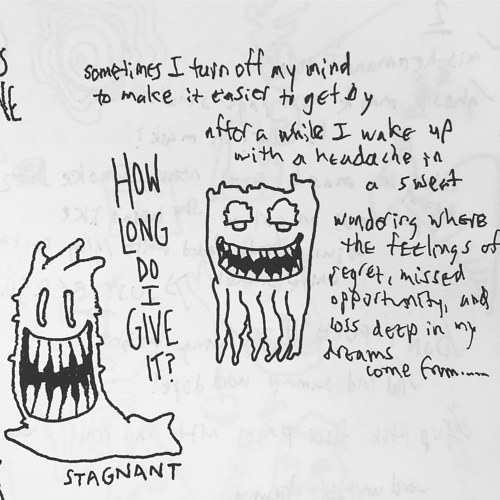 sometimes I turn off my mind
to make it easier to get by
after a while I wake up
with a headache in
a sweat
wondering where
the feelings of
regret, missed
opportunity, and
loss deep in my
dreams
come from......
HOW
LONG
DO
I
GIVE
IT?
STAGNANT